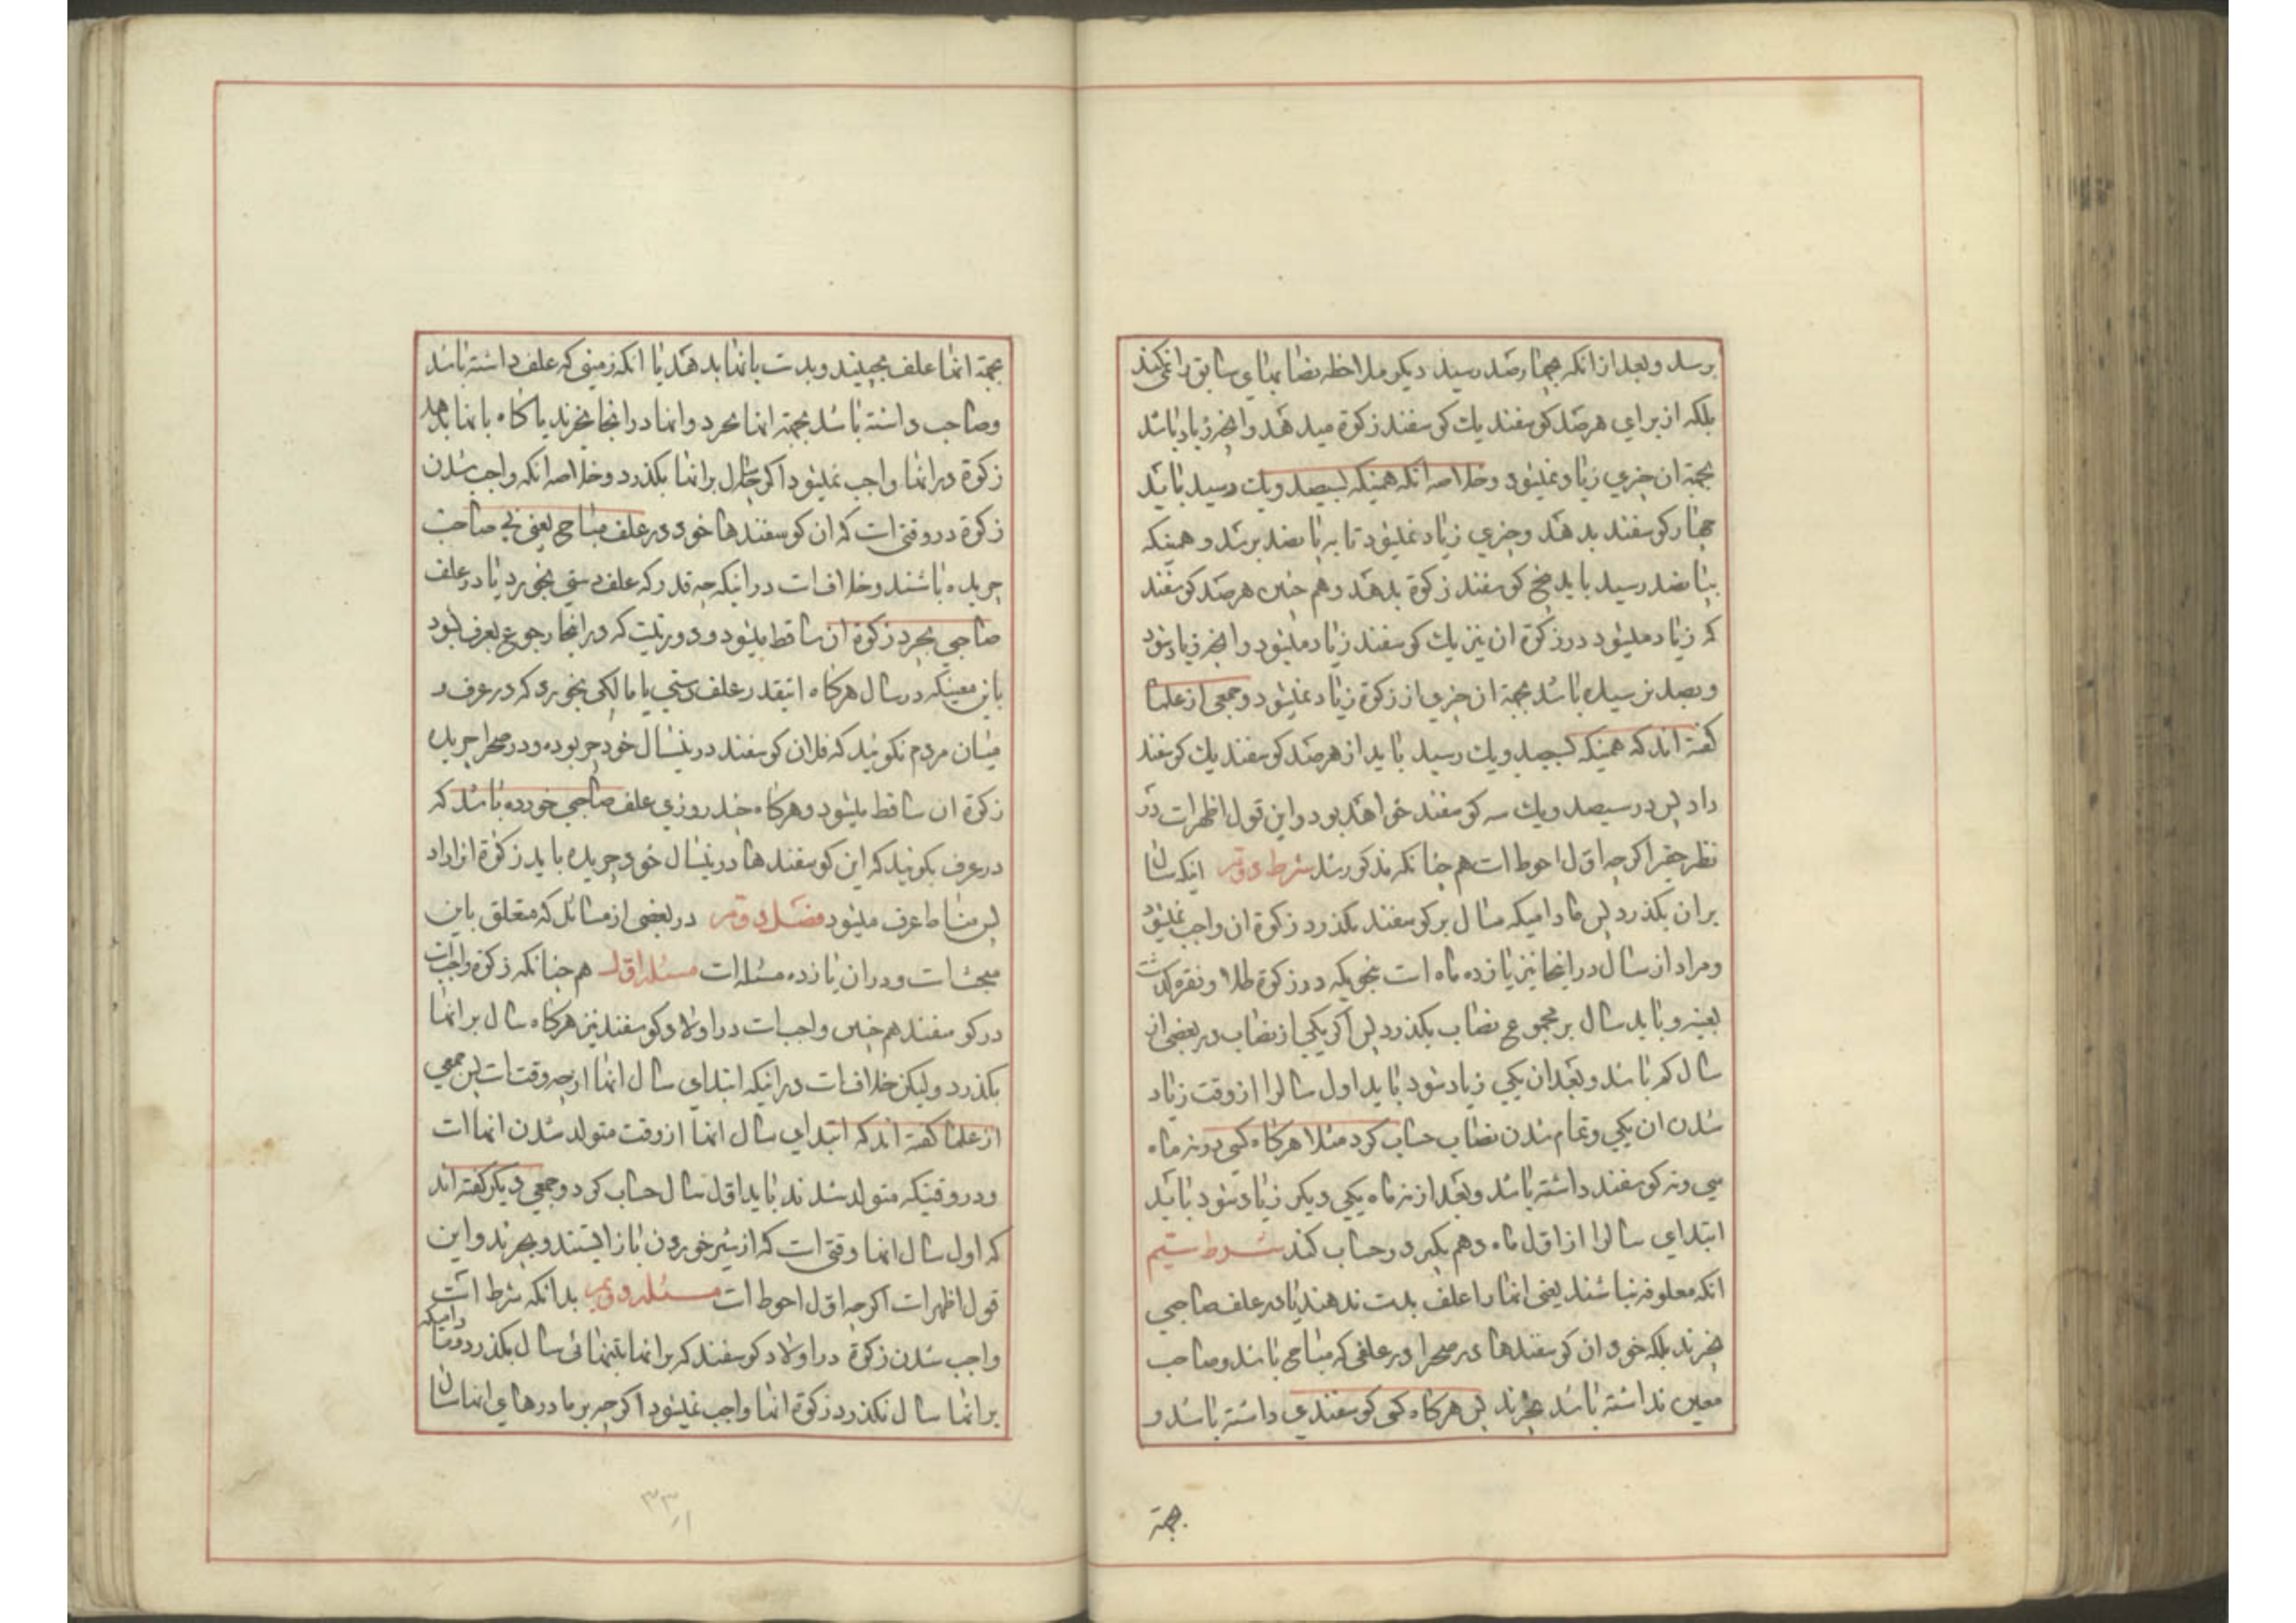 برسد و بعد از انکه بچهارصد رسید دیکر ملاحظه نصابهای سابق را نمیکند
بلکه از برای هر صد کوسفند یك کوسفند زکوة میدهد و انچه زیاد باشد
بجهة ان چیزی زیاد نمیشود و خلاصه انکه همینکه بسیصد و یك رسید باید
چهار کوسفند بدهد و چیزی زیاد نمیشود تا به پانصد برسد و همینکه
بپانصد رسید باید پنج کوسفند زکوة بدهد و هم چنین هر صد کوسفند
که زیاد میشود در زکوة ان نیز یك کوسفند زیاد میشود و انچه زیاد شود
و بصد نرسیده باشد بجهة ان چیزی از زکوة زیاد نمیشود و جمعی از علما
کفته اند که همینکه بسیصد و یك رسید باید از هر صد کوسفند یك کوسفند
داد پس در سیصد و یك سه کوسفند خواهد بود و این قول اظهرات در
نظر حقیر اکرچه اول احوط ات هم چنانکه مذکور شد شرط دویم اینکه سال
بران بکذرد پس مادامیکه سال بر کوسفند نکذرد زکوة ان واجب نمیشود
و مراد از سال در اینجا نیز یازده ماه ات بنحویکه در زکوة طلا و نقره کذشت
بعینه و باید سال بر مجموع نصاب بکذرد پس اکر یکی از نصاب در بعضی از
سال کم باشد و بعد ان یکی زیاد شود باید اول سالرا از وقت زیاد
شدن ان یکی و تمام شدن نصاب حساب کرد مثلا هرکاه کسی در نه ماه
سی و نه کوسفند داشته باشد و بعد از نه ماه یکی دیکر زیاد شود باید
ابتدای سالرا از اول ماه دهم بکیرد و حساب کند شرط سیم
انکه معلوفه نباشند یعنی انها را علف بدست ندهند یا در علف صاحبی
نچرند بلکه خود ان کوسفندها در صحرا و در علفی که مباحی باشد و صاحب
معین نداشته باشد بچرند پس هرکاه کسی کوسفندی داشته باشد و
بجهة
بجهة انها علف بچیند و بدست بانها بدهد یا انکه زمینی که علف داشته باشد
و صاحب داشته باشد بجهة انها بخرد و انها در انجا بچرند یا کاه بانها بدهد
زکوة در انها واجب نمیشود اکرچه سال بر انها بکذرد و خلاصه انکه واجب شدن
زکوة در وقتی ات که ان کوسفندها خود در علف مباحی یعنی بی صاحب
چریده باشند و خلاف ات در اینکه چه قدر که علف دستی بخورد یا در علف
صاحبی بچرد زکوة ان ساقط میشود و دور نیست که در اینجا رجوع بعرف شود
باین معنیکه در سال هرکاه انیقدر علف دستی یا مالکی بخورد که در عرف و
میان مردم نکویند که فلان کوسفند در اینسال خود چر بوده و در صحرا چریده
زکوة ان ساقط میشود و هرکاه چند روزی علف صاحبی خورده باشد که
در عرف بکویند که این کوسفندها در اینسال خود چریده باید زکوة انرا داد
پس مناط عرف میشود فصل دویم در بعضی از مسائل که متعلق باین
مبحث ات و دران یازده مسئله ات مسئله اول هم چنانکه زکوة واجبات
در کوسفند هم چنین واجب ات در اولاد کوسفند نیز هرکاه سال بر انها
بکذرد و لیکن خلاف ات در اینکه ابتدای سال انها از چه وقت ات پس جمعی
از علما کفته اند که ابتدای سال انها از وقت متولد شدن انها ات
و در وقتیکه متولد شدند باید اول سال حساب کرد و جمعی دیکر کفته اند
که اول سال انها وقتی ات که از شیر خوردن باز ایستند و بچرند و این
قول اظهر ات اکرچه اول احوط ات مسئله دویم بدانکه شرط ات
واجب شدن زکوة در اولاد کوسفند که بر انها بتنهائی سال بکذرد و مادامیکه
بر انها سال نکذرد زکوة انها واجب نمیشود اکرچه بر مادرهای انها سال
۳۳۱